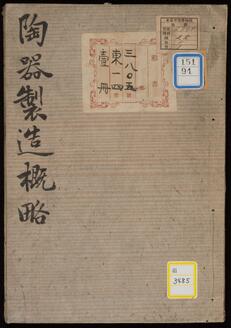 陶器製造概略
圖書
三八〇五
東一四
壹冊
151
91
3485